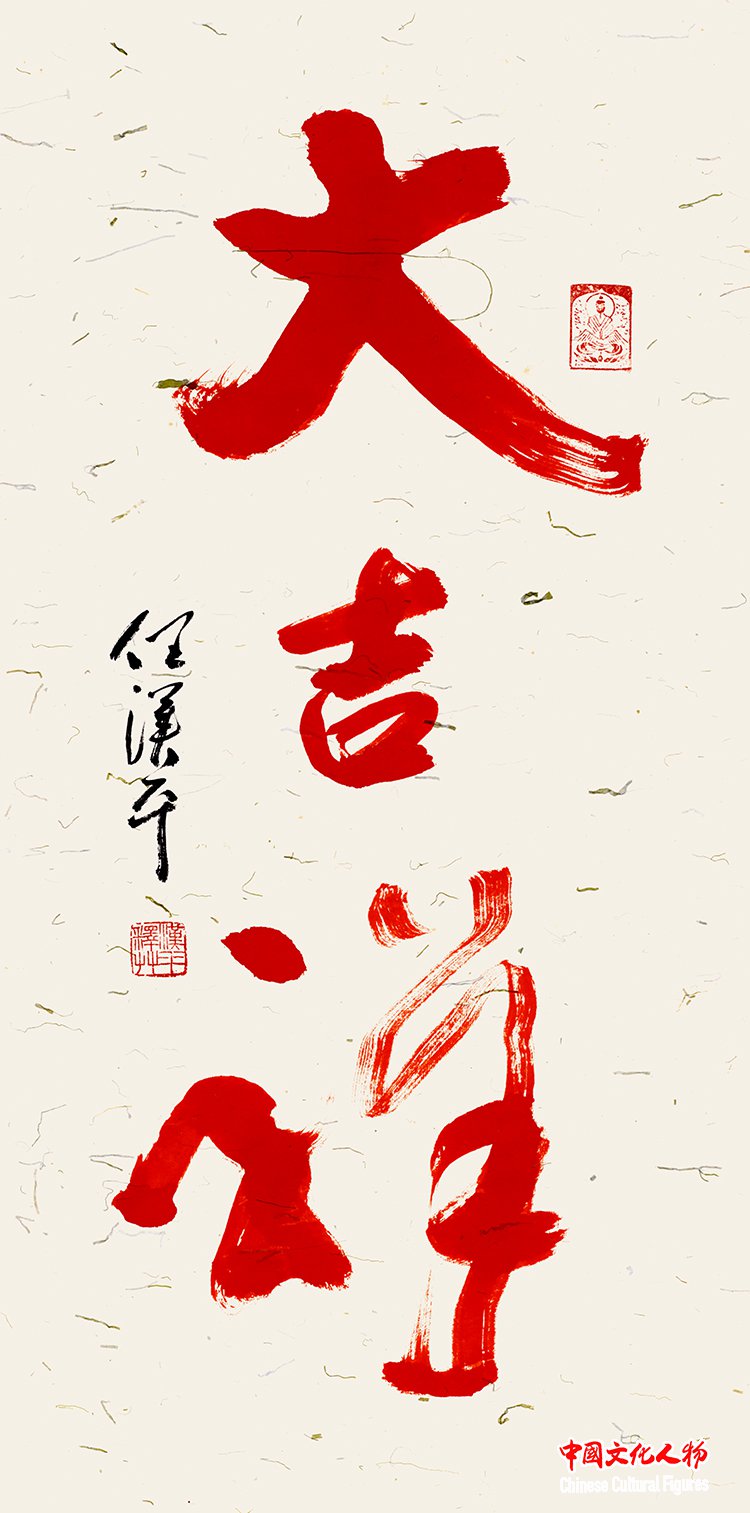 大吉祥
任漢平
漢平
譯艸
中國文化人物
Chinese Cultural Figures